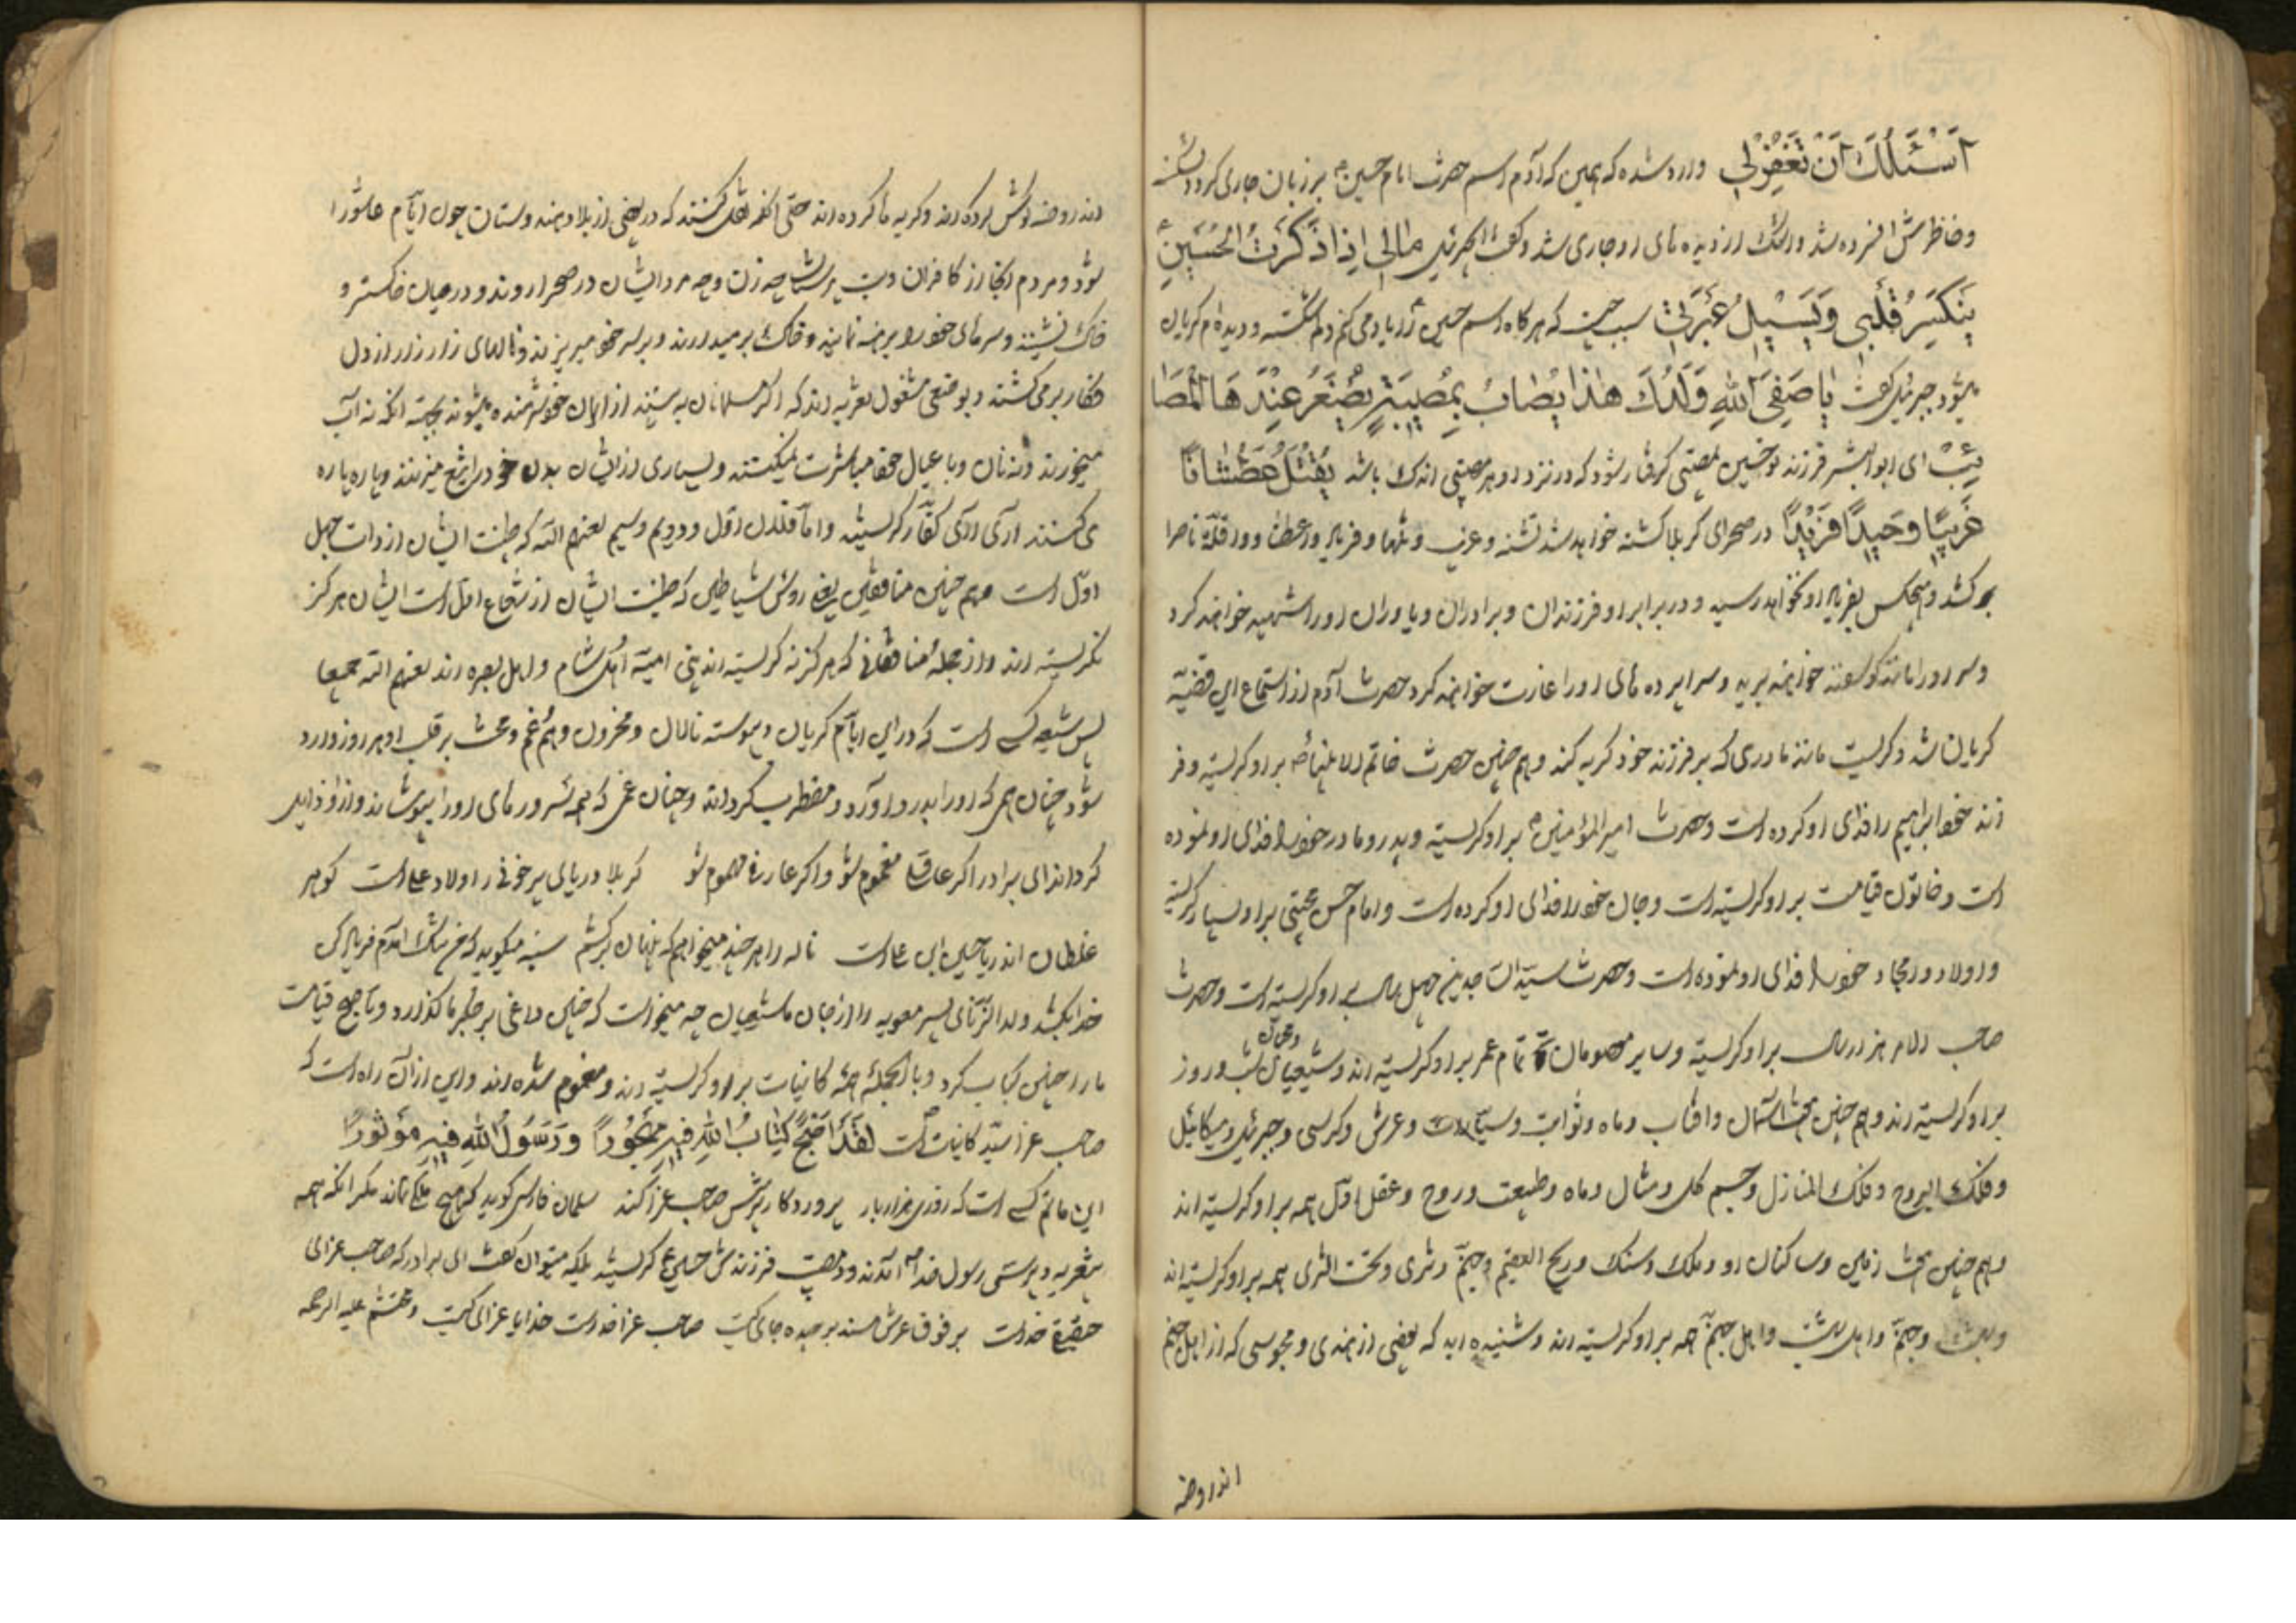 اَسْئَلُكَ اَنْ تَغْفِرَ لِی وارد شده که همین که آدم اسم حضرت امام حسین بر زبان جاری کرد دلشکسته
و خاطرش افسرده شد و اشک از دیده های او جاری شد و گفت ای جبرئیل مالِی اِذا ذَكَرْتُ الْحُسَیْنِ
یَنْكَسِرُ قَلْبِی وَ یَسِیْلُ عَبْرَتِی سبب چیست که هرگاه اسم حسین را یاد می کنم دلم شکسته و دیده ام گریان
میشود جبرئیل گفت یا صَفِیَّ اللهِ وَلَدُكَ هٰذا یُصابُ بِمُصِیْبَةٍ یَصْغَرُ عِنْدَهَا الْمَصَا
ئِبُ ای ابوالبشر فرزند تو حسین بمصیبتی گرفتار شود که در نزد او هر مصیبتی اندک باشد یُقْتَلُ عَطْشاناً
غَرِیْباً وَحِیْداً فَرِیْداً در صحرای کربلا کشته خواهد شد تشنه و غریب و تنها و فریاد واعطشا و واقلة ناصرا
بر کشد و هیچکس بفریاد او نخواهد رسید و در برابر او فرزندان و برادران و یاوران او را شهید خواهند کرد
و سر او را مانند گوسفند خواهند برید و سراپرده های او را غارت خواهند کرد حضرت آدم از استماع این قضیّه
گریان شد و گریست مانند مادری که بر فرزند خود گریه کند و هم چنین حضرت خاتم الانبیا بر او گریسته و فر
زند خود ابراهیم را فدای او کرده است و حضرت امیرالمؤمنین بر او گریسته و پدر و مادر خود را فدای او نموده
است و خاتون قیامت بر او گریسته است و جان خود را فدای او کرده است و امام حسن مجتبی بر او بسیار گریسته
و اولاد و امجاد خود را فدای او نموده است و حضرت سیّد السّاجدین چهل سال بر او گریسته است و حضرت
صاحب الامر هزار سال بر او گریسته و سایر معصومان تمام عمر بر او گریسته اند و شیعیان و محبّان شب و روز
بر او گریسته اند و هم چنین هفت آسمان و آفتاب و ماه و ثوابت و سیّارات و عرش و کرسی و جبرئیل و میکائیل
و فلک البروج و فلک المنازل و جسم کل و مثال و ماه و طبیعت و روح و عقل اوّل همه بر او گریسته اند
و هم چنین هفت زمین و ساکنان او و ملک و سنگ و ریح العقیم و جهنّم و ثری و تحت الثری همه بر او گریسته اند
و بهشت و جهنّم و اهل بهشت و اهل جهنّم همه بر او گریسته اند و شنیده اید که بعضی از هندی و مجوسی که از اهل جهنم
اند روضه
اند روضه خوانش کرده اند و گریه ها کرده اند حتّی آنکه نقل کنند که در بعضی از بلاد هندوستان چون ایّام عاشورا
شود و مردم آنجا از کافران و بت پرستان چه زن و چه مرد ایشان در صحرا روند و در میان خاکستر و
خاک نشینند و سرهای خود را برهنه نمایند و خاک بر میدارند و بر سر خود میریزند و ناله های زار زار از دل
فکار بر می کشند و بوضعی مشغول تعزیه اند که اگر مسلمانان به بینند از ایمان خود شرمنده میشوند بجهت آنکه نه آب
میخورند و نه نان و با عیال خود مباشرت نمیکنند و بسیاری از ایشان بدن خود را تیغ میزنند و پاره پاره
می کنند آری آری کفّار گریستند و امّا قاتلان اوّل و دویم و سیم لعنهم الله که طینت ایشان از ذات جهل
اوّل است و هم چنین منافقین یعنی روش شیاطین که طینت ایشان از شعاع اوّل است ایشان هرگز
نگریسته اند و از جمله منافقانی که هرگز نگریسته اند بنی امیّه اهل شام و اهل بصره اند لعنهم الله جمیعا
پس شیعه کسی است که در این ایّام گریان و پیوسته نالان و محزون و همّ و غم و محنت بر قلب او هر روز وارد
شود چنان همی که او را بدرد آورد و مضطرب گرداند و چنان غمی که همه سرورهای او را بپوشاند و از او زایل
گرداند ای برادر اگر عاقلی مغموم شو و اگر عارفی مهموم شو کربلا دریای پر خونی ز اولاد علی است گوهر
غلطان اندریا حسین ابن علی است ناله را هر چند میخواهم که پنهان بر کشم سینه میگوید که من تنگ آمدم فریاد کن
خدا بکشد ولد الزّنای پسر معویه را از جان ما شیعیان چه میخواست که چنین داغی بر جگر ما گذارد و تا صبح قیامت
ما را چنین کباب کرد و بالجمله همه کاینات بر او گریسته اند و مغموم شده اند و این از آن راه است که
صاحب عزا سیّد کاینات است لَقَدْ اَصْبَحَ كِتابُ اللهِ فِیْهِ مَهْجُوْراً وَ رَسُوْلُ اللهِ فِیْهِ مَوْتُوْراً
این ماتم کسی است که روزی هزار بار پروردگار پرسش صاحب عزا کند سلمان فارسی گوید که هیچ ملکی نماند مگر آنکه همه
بتعزیه و پرستی رسول خدا آمدند و در مصیبت فرزندش حسین گریستند بلکه میتوان گفت ای برادر که صاحب عزای
حقیقی خداست بر فوق عرش مسند بر چیده جای کیست صاحب عزا خداست خدایا عزای کیست و محتشم علیه الرحمه